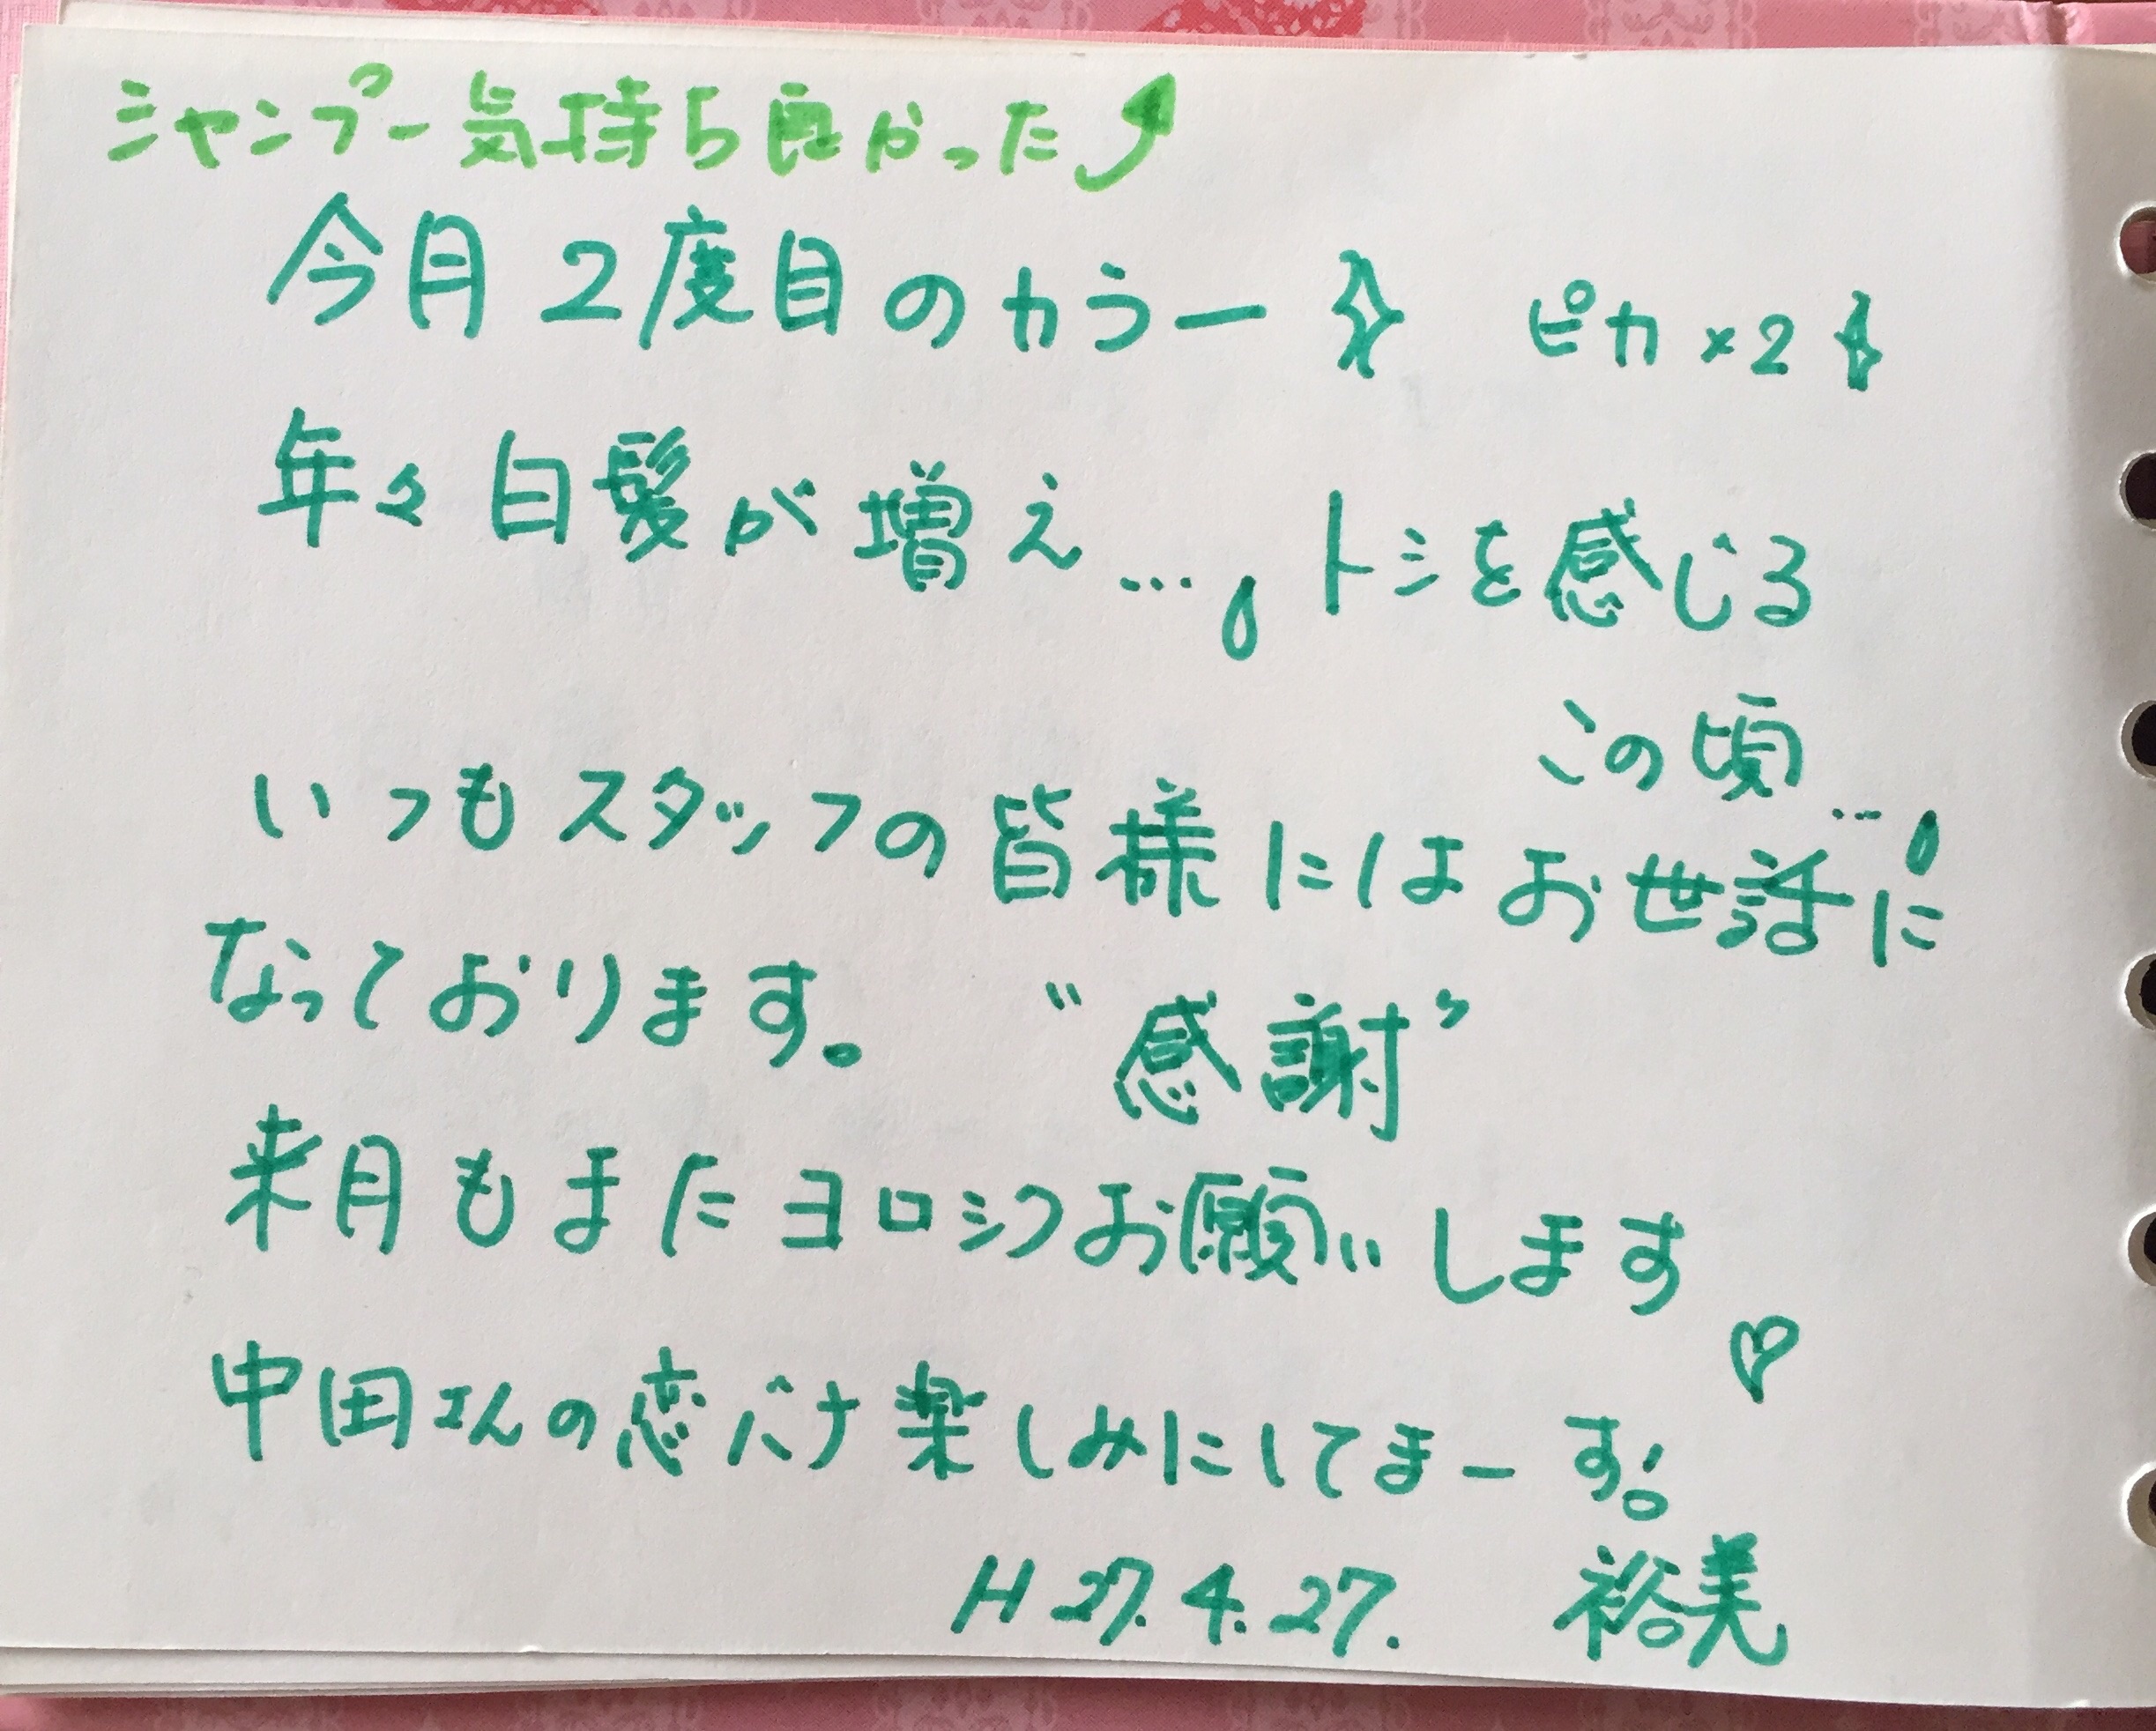 シャンプー気持ち良かった⤴
今月2度目のカラー☆ ピカ×2☆
年々白髪が増え…。トシを感じる
この頃…。
いつもスタッフの皆様にはお世話に
なっております。 〝感謝〟
来月もまたヨロシクお願いします♡
中田さんの恋バナ楽しみにしてまーす。
H27.4.27. 裕美